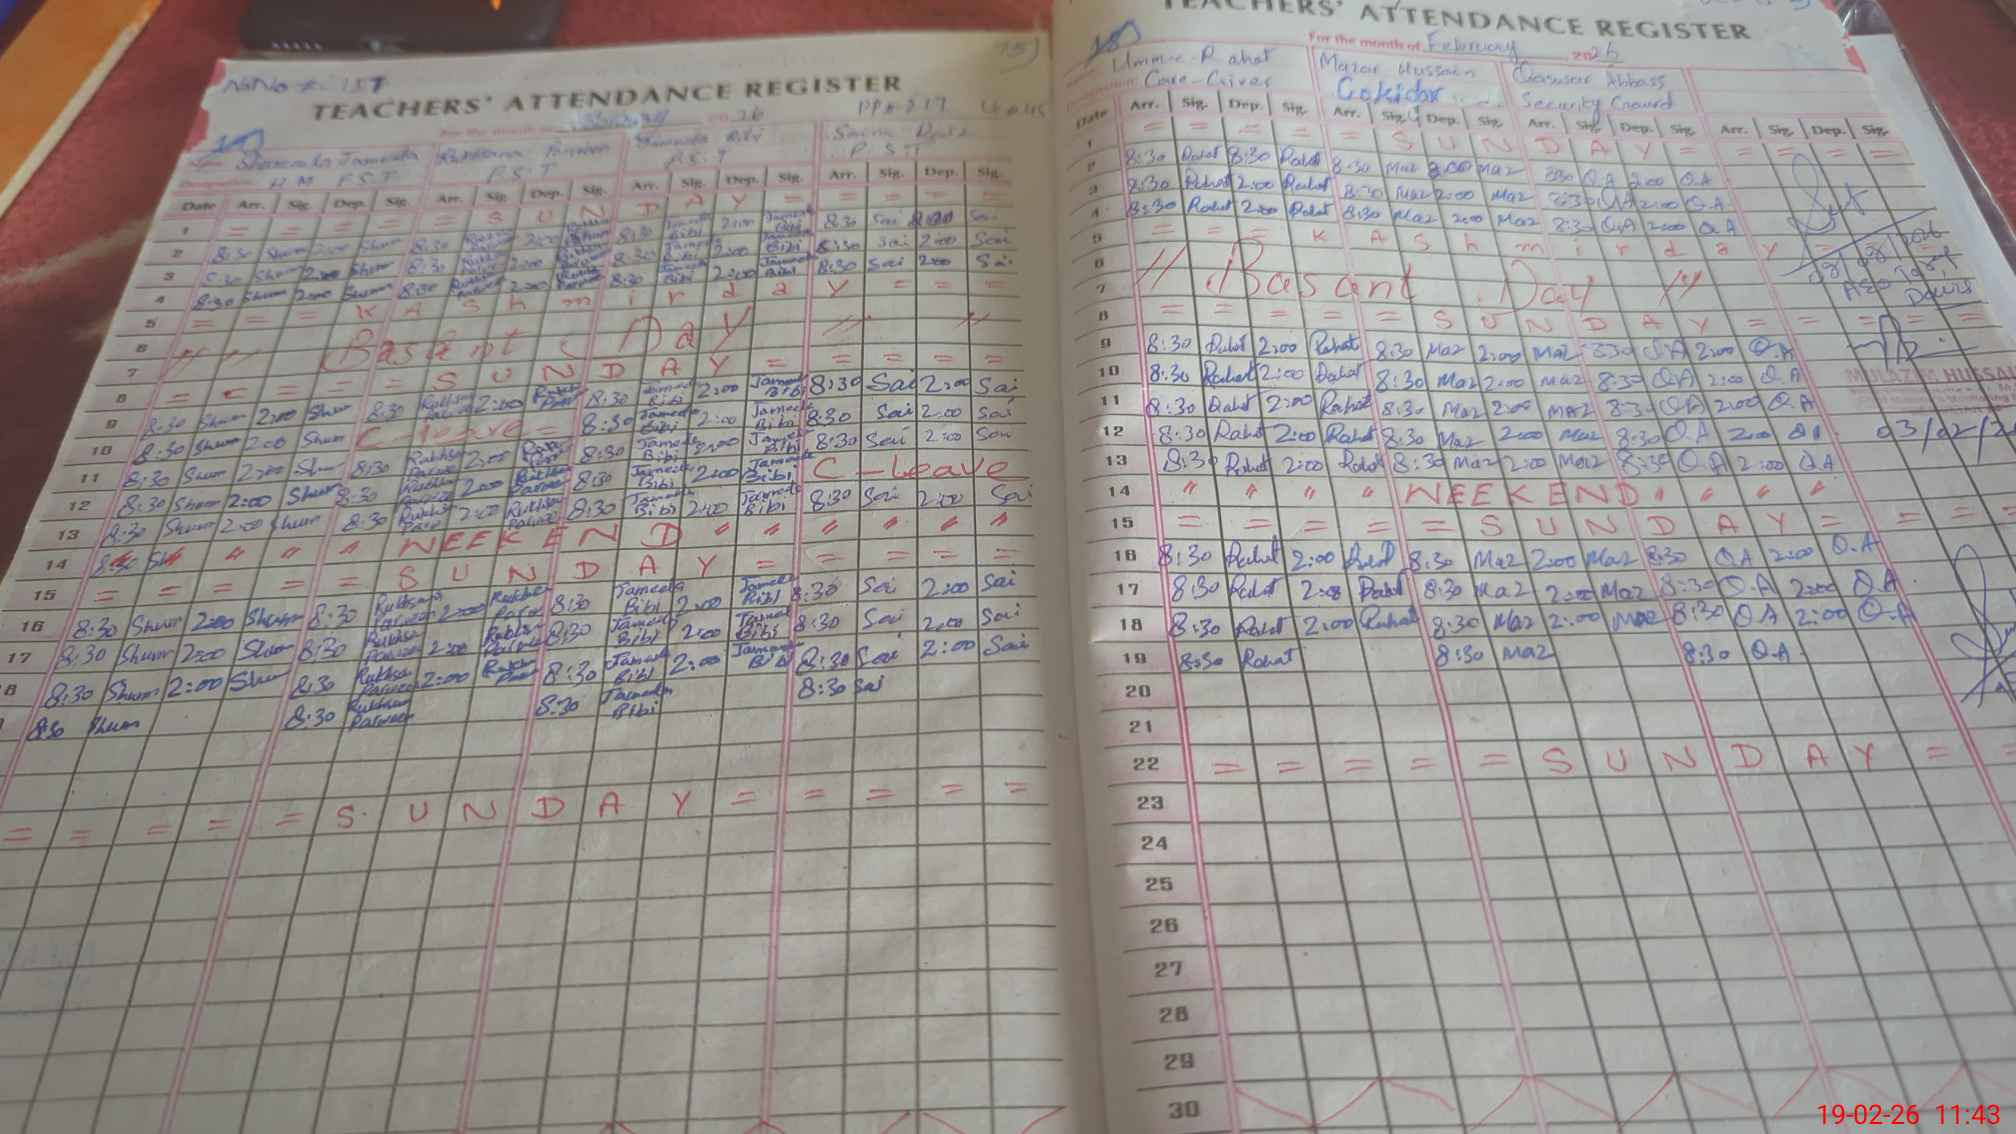 NSNo #: 157
TEACHERS' ATTENDANCE REGISTER
Shamuda Jameela
H M P.S.T
Rukhsana Parveen
P.S.T
Jameela Bibi
P.S.T
P.S.T
Date Arr. Sig. Dep. Sig. Arr. Sig. Dep. Sig. Arr. Sig. Dep. Sig. Arr. Sig. Dep. Sig.
1 = = = = = S U N D A Y = = = = =
2 8:30 Shum 2:00 Shum 8:30 Rukhsa Parveen 2:00 Rukhsa Parveen 8:30 Jameela Bibi 2:00 Jameela Bibi 8:30 Sai 2:00 Sai
3 8:30 Shum 2:00 Shum 8:30 Rukhsa Parveen 2:00 Rukhsa Parveen 8:30 Jameela Bibi 2:00 Jameela Bibi 8:30 Sai 2:00 Sai
4 8:30 Shum 2:00 Shum 8:30 Rukhsa Parveen 2:00 Rukhsa Parveen 8:30 Jameela Bibi 2:00 Jameela Bibi 8:30 Sai 2:00 Sai
5 = = = K A S h m i r d a y = = =
6 Basant Day
7
8 = = = = = S U N D A Y = = = = =
9 8:30 Shum 2:00 Shum 8:30 Rukhsa Parveen 2:00 Rukhsa Parveen 8:30 Jameela Bibi 2:00 Jameela Bibi 8:30 Sai 2:00 Sai
10 8:30 Shum 2:00 Shum C-leave = 8:30 Jameela Bibi 2:00 Jameela Bibi 8:30 Sai 2:00 Sai
11 8:30 Shum 2:00 Shum 8:30 Rukhsa Parveen 2:00 Rukhsa Parveen 8:30 Jameela Bibi 2:00 Jameela Bibi 8:30 Sai 2:00 Sai
12 8:30 Shum 2:00 Shum 8:30 Rukhsa Parveen 2:00 Rukhsa Parveen 8:30 Jameela Bibi 2:00 Jameela Bibi C-Leave
13 8:30 Shum 2:00 Shum 8:30 Rukhsa Parveen 2:00 Rukhsa Parveen 8:30 Jameela Bibi 2:00 Jameela Bibi 8:30 Sai 2:00 Sai
14 " " " " WEEKEND " " " " "
15 = = = = = S U N D A Y = = = = =
16 8:30 Shum 2:00 Shum 8:30 Rukhsa Parveen 2:00 Rukhsa Parveen 8:30 Jameela Bibi 2:00 Jameela Bibi 8:30 Sai 2:00 Sai
17 8:30 Shum 2:00 Shum 8:30 Rukhsa Parveen 2:00 Rukhsa Parveen 8:30 Jameela Bibi 2:00 Jameela Bibi 8:30 Sai 2:00 Sai
8 8:30 Shum 2:00 Shum 8:30 Rukhsa Parveen 2:00 Rukhsa Parveen 8:30 Jameela Bibi 2:00 Jameela Bibi 8:30 Sai 2:00 Sai
8:30 Shum 8:30 Rukhsa Parveen 8:30 Jameela Bibi 8:30 Sai
= = = = = S U N D A Y = = = = =
TEACHERS' ATTENDANCE REGISTER
For the month of February 2026
Umm-e-Rahat
Care-Giver
Mazar Hussain
Cokidar
Qawsar Abbass
Security Gaurd
Date Arr. Sig. Dep. Sig. Arr. Sig. Dep. Sig. Arr. Sig. Dep. Sig. Arr. Sig. Dep. Sig.
1 = = = = = S U N D A Y = = = = =
2 8:30 Rahat 8:30 Rahat 8:30 Maz 2:00 Maz 8:30 Q.A 2:00 Q.A
3 8:30 Rahat 2:00 Rahat 8:30 Maz 2:00 Maz 8:30 Q.A 2:00 Q.A
4 8:30 Rahat 2:00 Rahat 8:30 Maz 2:00 Maz 8:30 Q.A 2:00 Q.A
5 = = = K A S h m i r d a y = =
6
7 // Basant Day //
8 = = = = = S U N D A Y = = = = =
9 8:30 Rahat 2:00 Rahat 8:30 Maz 2:00 Maz 8:30 Q.A 2:00 Q.A
10 8:30 Rahat 2:00 Rahat 8:30 Maz 2:00 Maz 8:30 Q.A 2:00 Q.A
11 8:30 Rahat 2:00 Rahat 8:30 Maz 2:00 Maz 8:30 Q.A 2:00 Q.A
12 8:30 Rahat 2:00 Rahat 8:30 Maz 2:00 Maz 8:30 Q.A 2:00 Q.A
13 8:30 Rahat 2:00 Rahat 8:30 Maz 2:00 Maz 8:30 Q.A 2:00 Q.A
14 " " " " WEEKEND " " " "
15 = = = = = S U N D A Y = = = =
16 8:30 Rahat 2:00 Rahat 8:30 Maz 2:00 Maz 8:30 Q.A 2:00 Q.A
17 8:30 Rahat 2:00 Rahat 8:30 Maz 2:00 Maz 8:30 Q.A 2:00 Q.A
18 8:30 Rahat 2:00 Rahat 8:30 Maz 2:00 Maz 8:30 Q.A 2:00 Q.A
19 8:30 Rahat 8:30 Maz 8:30 Q.A
20
21
22 = = = = = S U N D A Y = =
23
24
25
26
27
28
29
30
HUSSAI
03/02/2
19-02-26 11:43